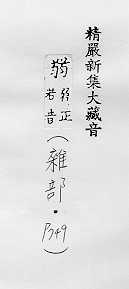 精嚴新集大藏音
蒻
弱正
若音
(雜部·P349)